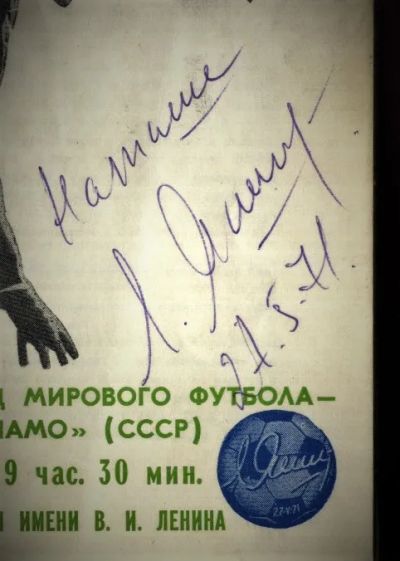 Наташе
Л. Яшин
27.5.71.
Д МИРОВОГО ФУТБОЛА—
НАМО» (СССР)
9 час. 30 мин.
И ИМЕНИ В. И. ЛЕНИНА
Л. Яшин
27·V·71